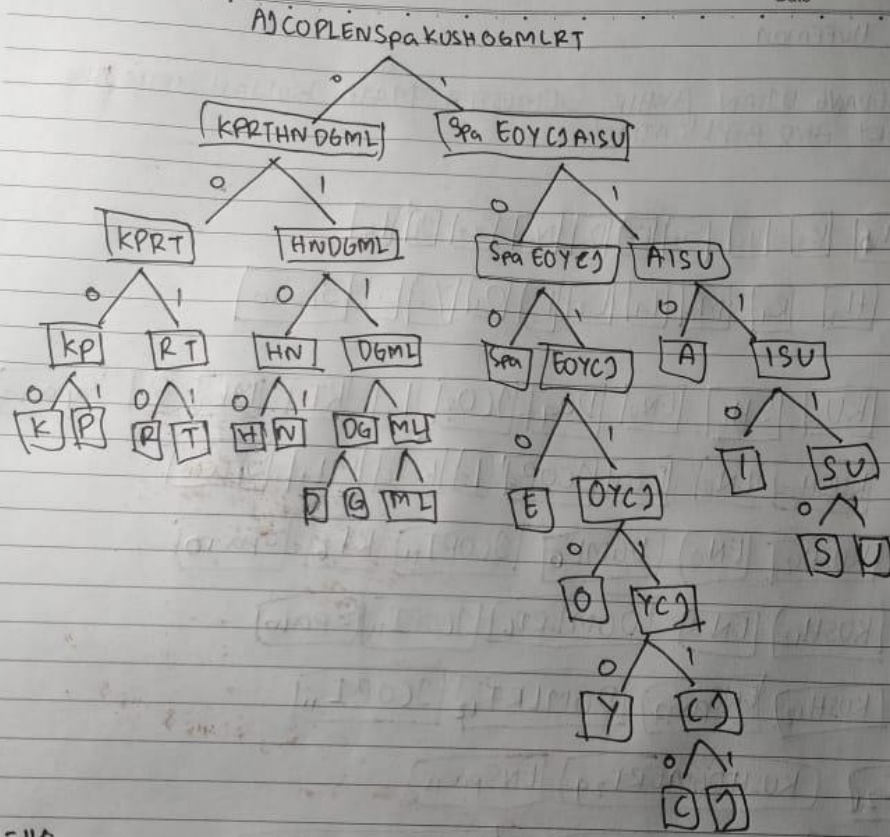 AJCOPLENSpaKUSHOGMLRT
0 1
KPRTHNDGML Spa EOYCJAISU
0 1 0 1
KPRT HNDGML Spa EOYCJ AISU
0 1 0 1 0 1 0 1
KP RT HN DGML Spa EOYCJ A ISU
0 1 0 1 0 1 0 1 0 1
K P R T H N DG ML E OYCJ I SU
D G M L 0 1 0 1
O YCJ S U
0 1
Y CJ
0 1
C J